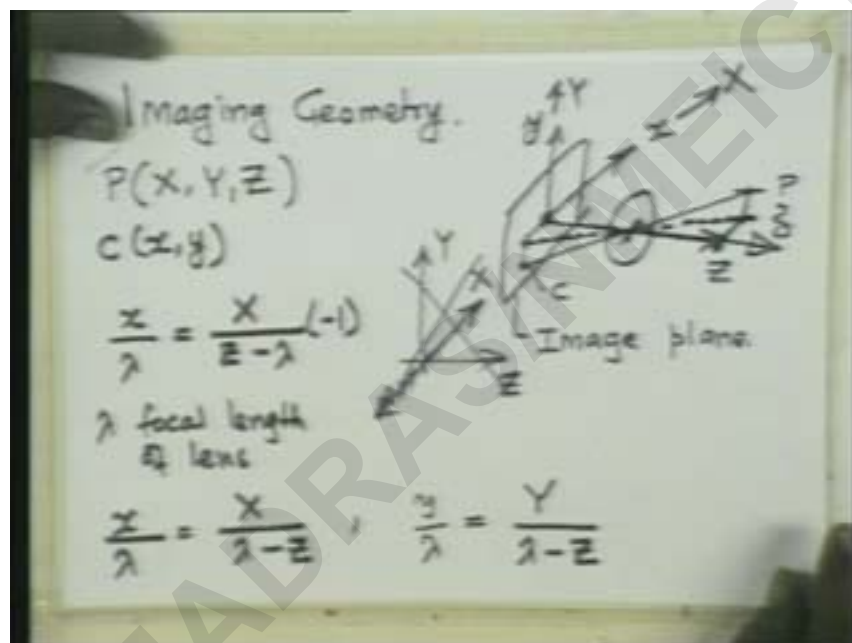 Imaging Geometry.
P(X, Y, Z)
c(x,y)
x/λ = X/(Z-λ) (-1)
λ focal length
of lens
x/λ = X/(λ-Z) , y/λ = Y/(λ-Z)
Y
y
x
X
P
Z
c
Image plane.
Y
X
Z